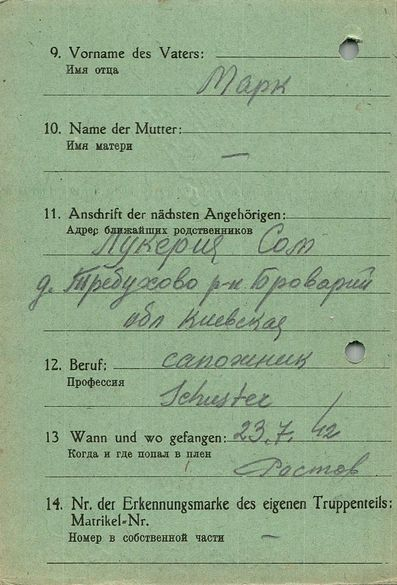 9. Vorname des Vaters:
Имя отца
Марк
10. Name der Mutter:
Имя матери
—
11. Anschrift der nächsten Angehörigen:
Адрес ближайших родственников
Лукерия Сом
д. Требухово р-н. Броварий
обл Киевская
12. Beruf: сапожник
Профессия
Schuster /
13 Wann und wo gefangen: 23.7.42
Когда и где попал в плен
Растов
14. Nr. der Erkennungsmarke des eigenen Truppenteils:
Matrikel-Nr.
Номер в собственной части –